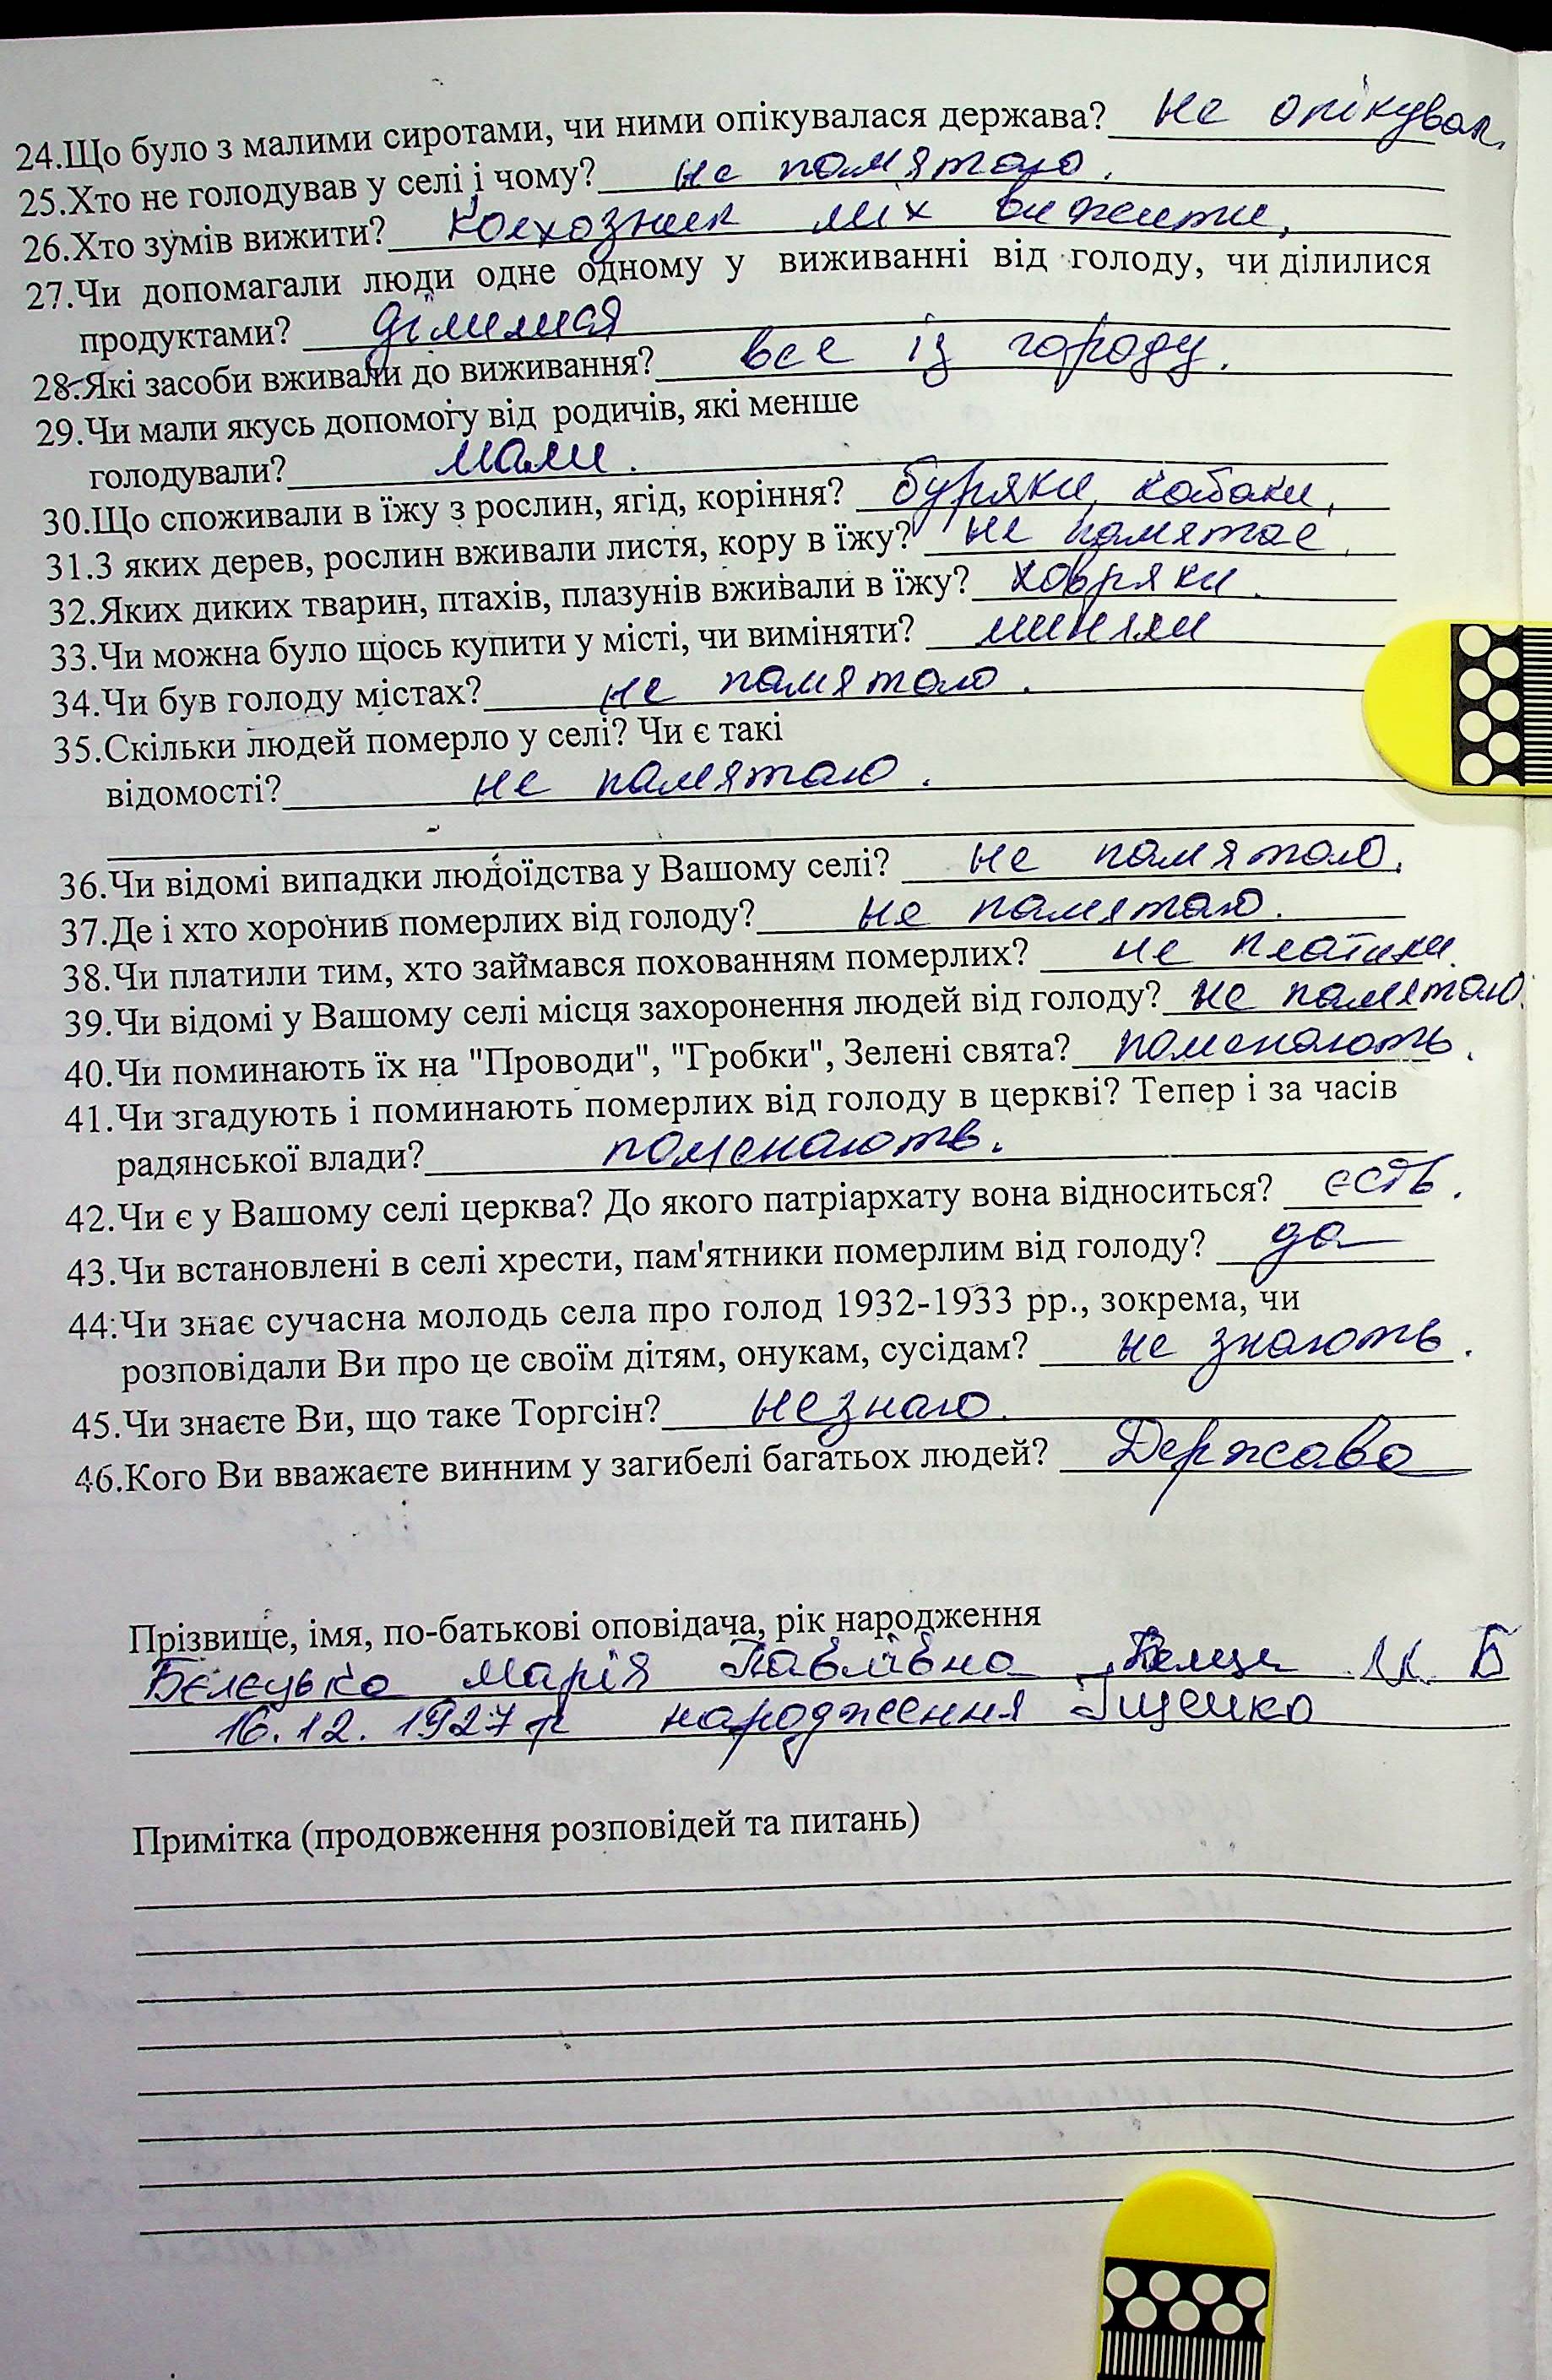 24.Що було з малими сиротами, чи ними опікувалася держава? не опікувал.
25.Хто не голодував у селі і чому? не помятаю.
26.Хто зумів вижити? колхозник міх вижити,
27.Чи допомагали люди одне одному у виживанні від голоду, чи ділилися
продуктами? ділилися
28.Які засоби вживали до виживання? все із городу.
29.Чи мали якусь допомогу від родичів, які менше
голодували? мали.
30.Що споживали в їжу з рослин, ягід, коріння? буряки, кабаки,
31.З яких дерев, рослин вживали листя, кору в їжу? не памятає.
32.Яких диких тварин, птахів, плазунів вживали в їжу? ховряки.
33.Чи можна було щось купити у місті, чи виміняти? миняли
34.Чи був голоду містах? не памятаю.
35.Скільки людей померло у селі? Чи є такі
відомості? не памятаю.
36.Чи відомі випадки людоїдства у Вашому селі? не памятаю.
37.Де і хто хоронив померлих від голоду? не памятаю.
38.Чи платили тим, хто займався похованням померлих? не платили.
39.Чи відомі у Вашому селі місця захоронення людей від голоду? не памятаю.
40.Чи поминають їх на "Проводи", "Гробки", Зелені свята? поменають.
41.Чи згадують і поминають померлих від голоду в церкві? Тепер і за часів
радянської влади? поменають.
42.Чи є у Вашому селі церква? До якого патріархату вона відноситься? єсть.
43.Чи встановлені в селі хрести, пам'ятники померлим від голоду? да
44.Чи знає сучасна молодь села про голод 1932-1933 рр., зокрема, чи
розповідали Ви про це своїм дітям, онукам, сусідам? не знають.
45.Чи знаєте Ви, що таке Торгсін? незнаю.
46.Кого Ви вважаєте винним у загибелі багатьох людей? Держава
Прізвище, імя, по-батькові оповідача, рік народження
Бєлєцька Марія Павлівна
16.12.1927 р народження Іщенко
Примітка (продовження розповідей та питань)